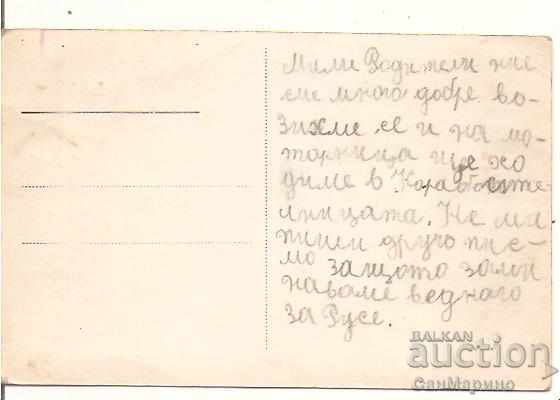 Мили Родители ние
сме много добре во-
зихме се и на мо-
торница ще хо
диме в Корабостое
лницата. Не ми
пиши друго пис-
мо защото зами
наваме веднага
за Русе.
BALKAN
auction
СанМарино